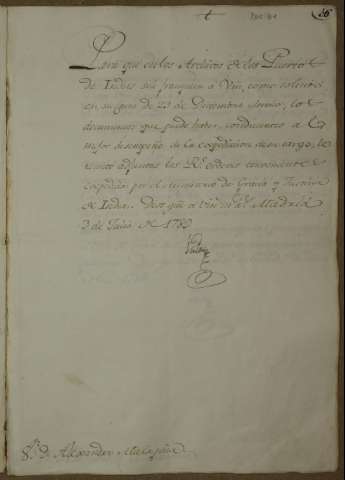 86
Para que en los Archivos de los Puertos
de Indias se franqueen a Vm, como solicita
en su papel de 23 de Diciembre ultimo, los
documentos que puede haber conducentes a la
mejor desempeño de la expedicion de su cargo, le
remito adjuntas las Rs. ordenes convenientes
expedidas por el ministerio de Gracia y Justicia
de Indias. Dios gue a Vm ms. as. Madrid
3 de Julio de 1789
Valdés
Sr. Dn. Alexandro Malaspina.